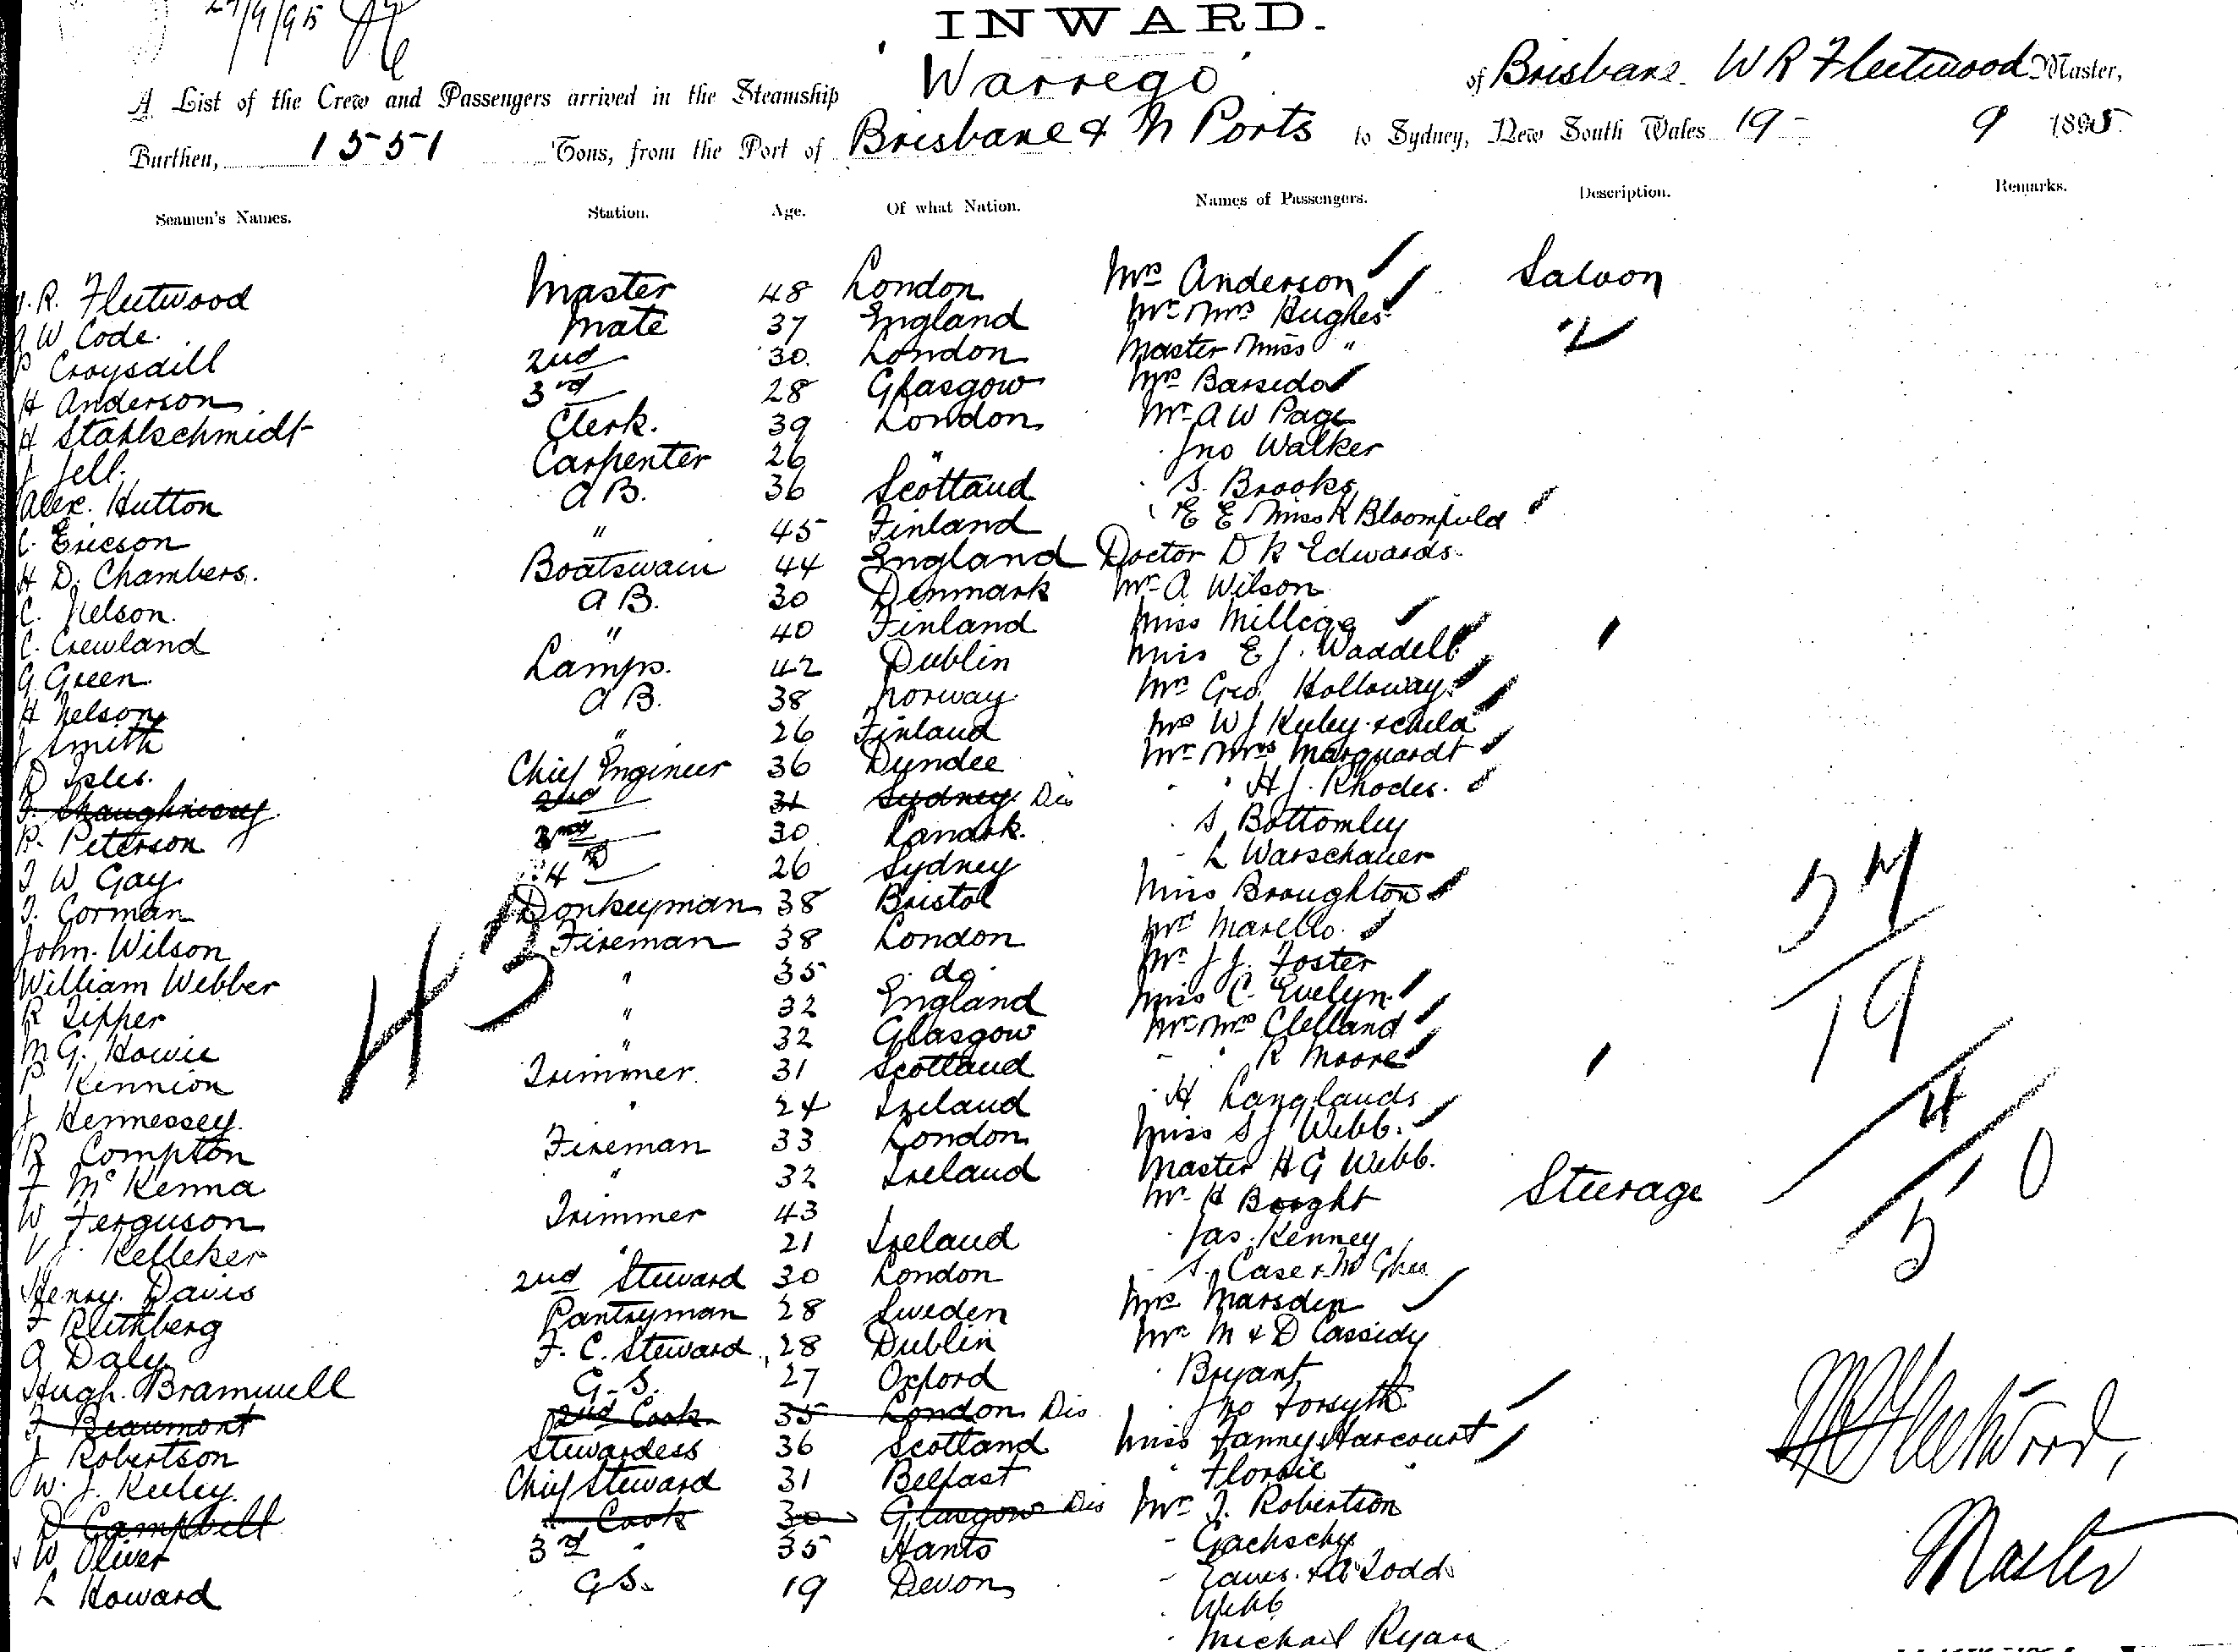 27/9/95
INWARD.
A List of the Crew and Passengers arrived in the Steamship Warrego of Brisbane. W R Fleetwood Master,
Burthen, 1551 Tons, from the Port of Brisbane & N Ports to Sydney, New South Wales 19 - 9 1895.
Seamen's Names. Station. Age. Of what Nation. Names of Passengers. Description. Remarks.
R. Fleetwood Master 48 London Mrs Anderson Saloon
W Code. Mate 37 England Mr Mrs Hughes
P Croysdill 2nd 30. London Master Miss "
H Anderson 3rd 28 Glasgow Mrs
H Stahlschmidt Clerk. 39 London Mr A W Page
J Jell. Carpenter 26 " Jno Walker
Alex. Hutton A B. 36 Scotland S. Brooks
C. Ericson " 45 Finland E E Miss K Bloomfield
H D. Chambers. Boatswain 44 England Doctor D R Edwards.
C. Nelson. A B. 30 Denmark Mr A Wilson
C. Crewland " 40 Finland Miss
G Green. Lamps. 42 Dublin Miss E J. Waddell
H Nelson A B. 38 Norway. Mrs Geo. Holloway
J Smith " 26 Finland Mrs W J Keeley & child
D Isles. Chief Engineer 36 Dundee Mr Mrs Marquardt
J. Shaughnessy 2nd 31 Sydney Dis H J. Rhodes.
R. Peterson 2nd 30 Lanark. S Bottomley
J W Gay 26 Sydney L Warschauer
J. Gorman Donkeyman 38 Bristol Miss Broughton
John. Wilson Fireman 38 London Mrs Marello.
William Webber " 35 do. Mr J J. Foster
R Tipper " 32 England Miss C. Evelyn
M G. Howie " 32 Glasgow Mr Mrs Clelland
P Kennion Trimmer 31 Scotland R Moore
J Hennessey. " 24 Ireland H Langlands
R Compton Fireman 33 London Miss S J Webb.
F McKenna " 32 Ireland Master H G Webb.
W Ferguson Trimmer 43 Mr H Steerage
V J. Kelleher " 21 Ireland Jas. Kenney
Henry. Davis 2nd Steward 30 London S. Case & McGhee
F Pantryman 28 Sweden Mrs Marsden
A Daly F. C. Steward 28 Dublin Mr M & D Cassidy
Hugh. Bramwell G. S. 27 Oxford Bryant
J Beaumont 2nd Cook 35 London Dis Jno Forsyth
J Robertson Stewardess 36 Scotland Miss Fanny Harcourt
W. J. Keeley. Chief Steward 31 Belfast " Florrie "
D Campbell " Cook 30 Glasgow Dis Mr J. Robertson
W Oliver 3rd " 35 Hants
L Howard G S. 19 Devon & A Todd
Webb
Michael Ryan
43
19
4
W R Fleetwood,
Master